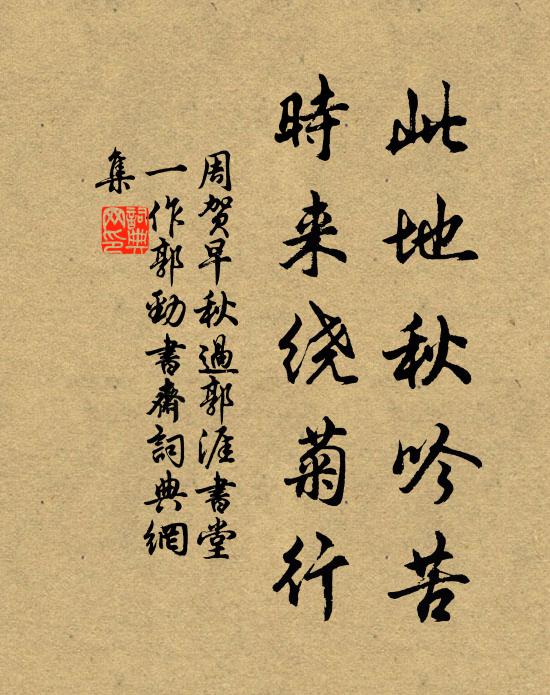 此地秋吟苦
時来绕菊行
周贺早秋過郭涯書堂
一作郭勁書齋詞典網
集
詞典
网印